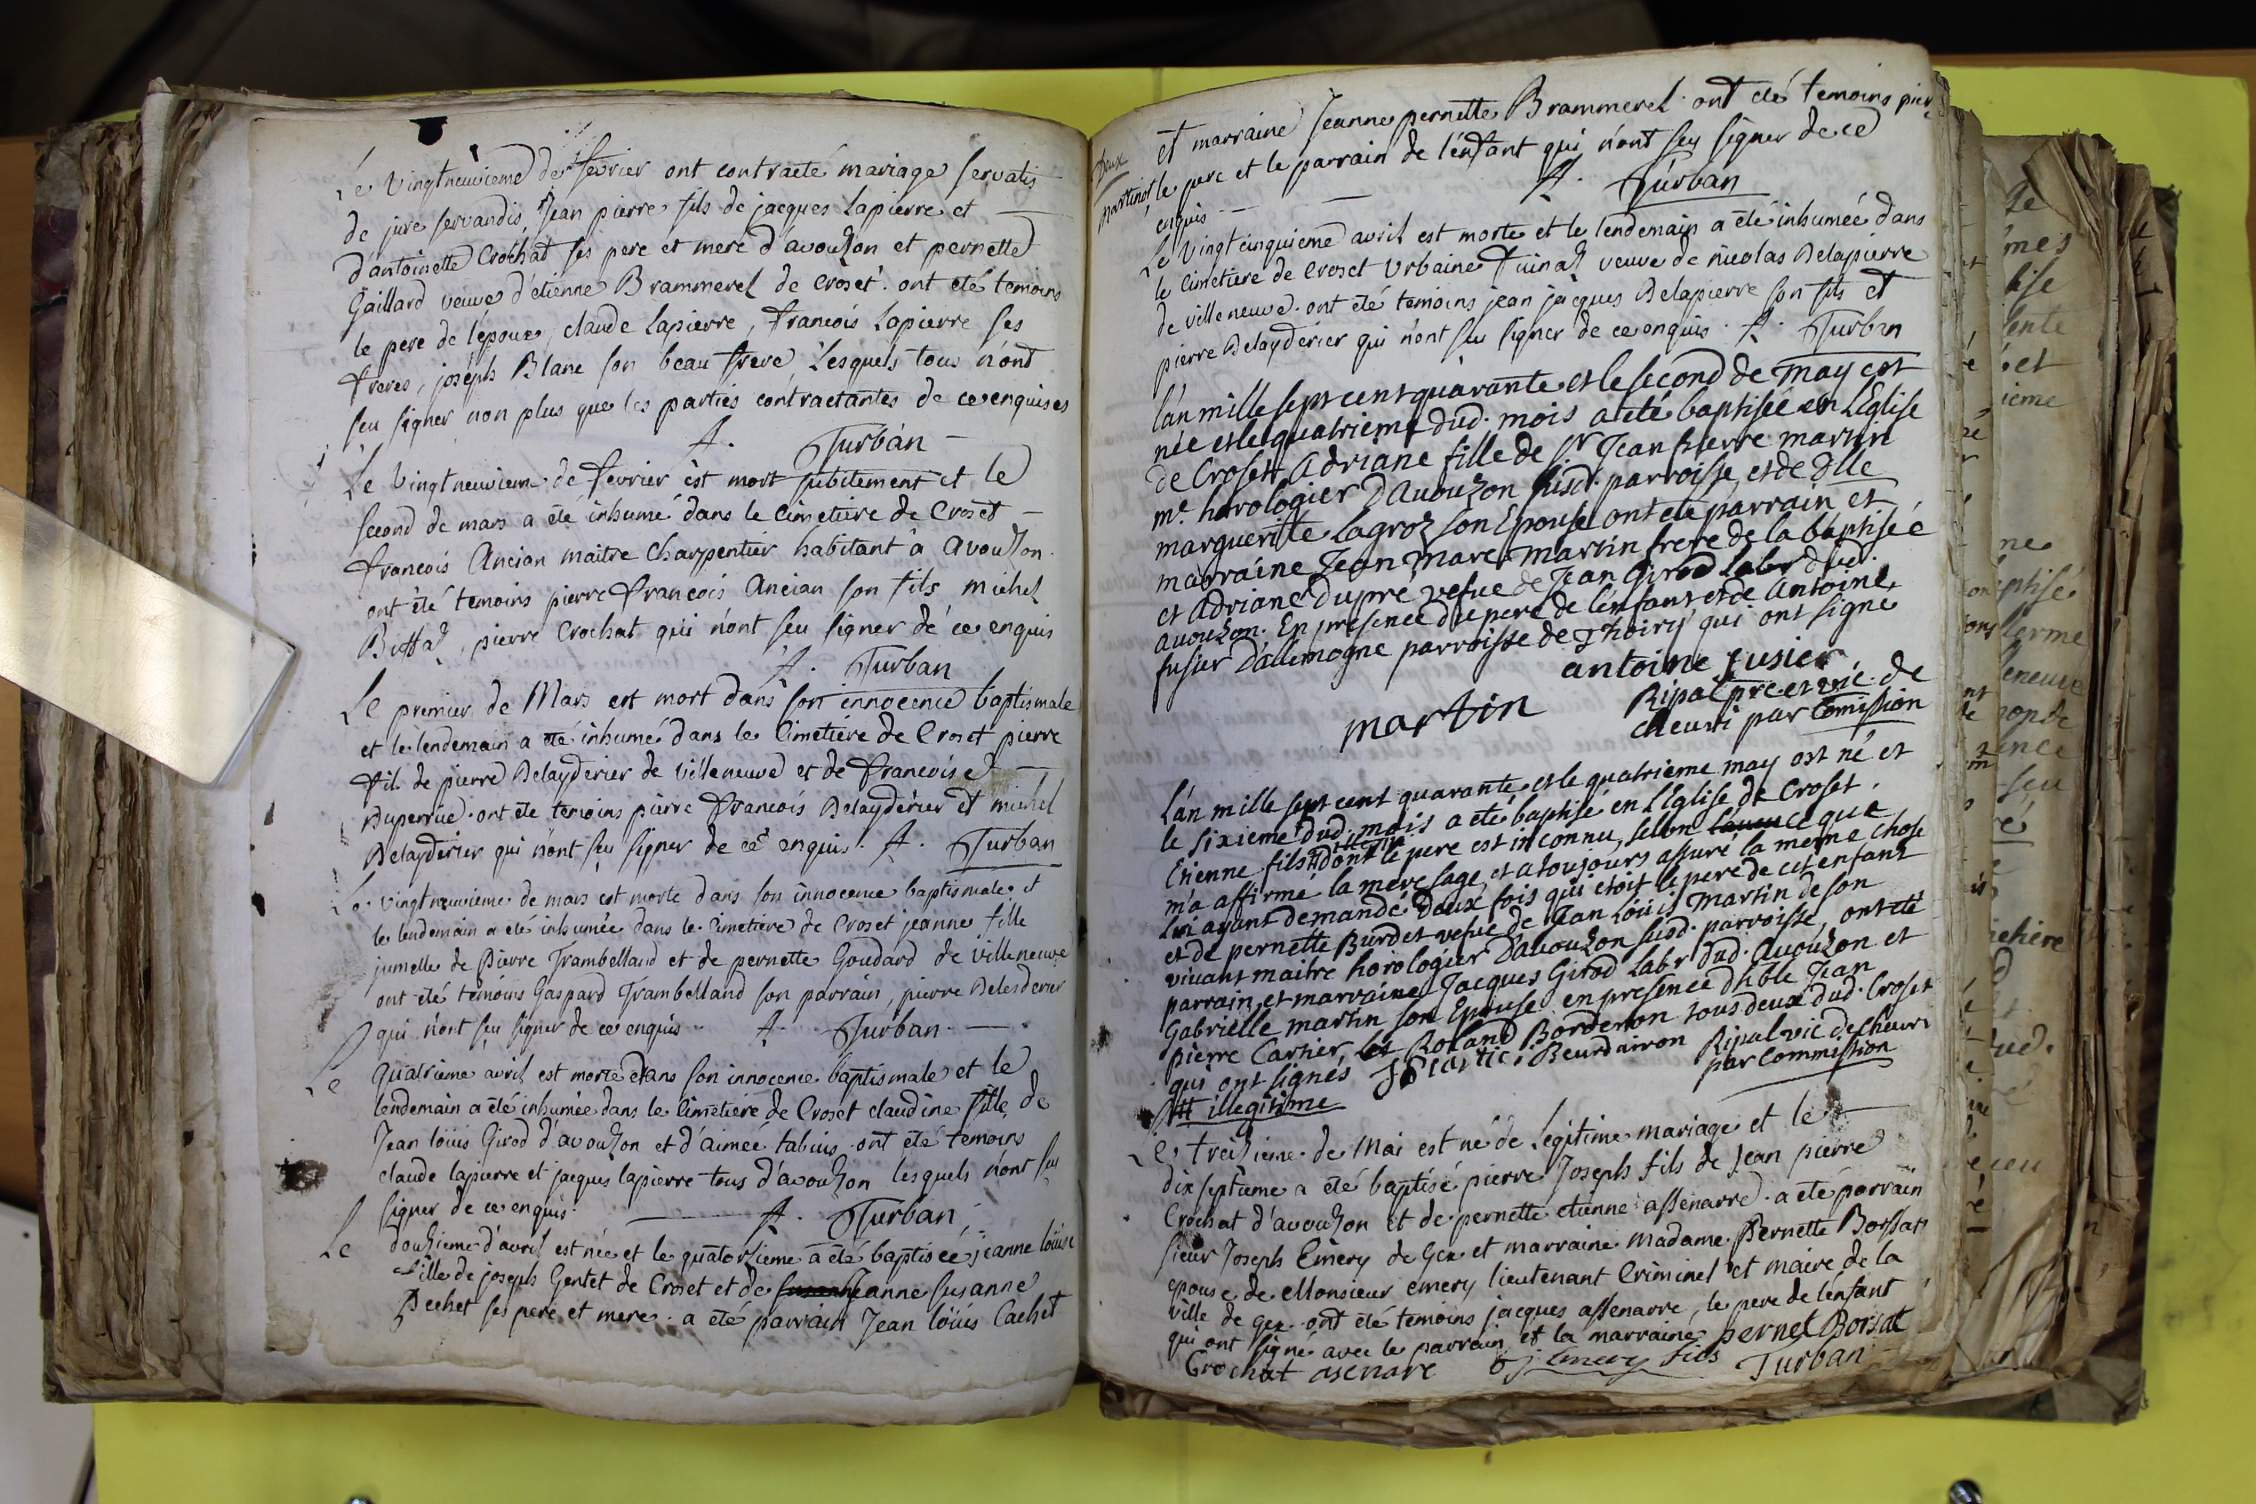 Le vingtneuvieme de fevrier ont contracté mariage servatis
de jure servandis, Jean pierre fils de jacques Lapierre et
d'antoinette Crochat ses pere et mere d'avouzon et pernette
Gaillard veuve d'étienne Brammerel de Croset. ont eté temoins
le pere de l'époux, claude Lapierre, francois Lapierre ses
freres, joseph Blanc son beau frere, Lesquels tous n'ont
seu signer non plus que les parties contractantes de ce enquises
A. Turban
Le vingtneuviem de fevrier est mort subitement et le
second de mars a été inhumé dans le Cimetiere de Croset
francois Ancian maitre Charpentier habitant à avouzon.
ont été temoins pierre francois Ancian son fils michel
pierre Crochat qui n'ont seu signer de ce enquis
A. Turban
Le premier de Mars est mort dans son innocence baptismale
et le lendemain a été inhumé dans le Cimetiere de Croset pierre
fils de pierre Delayderier de villeneuve et de francoise
Duperrüe. ont été temoins pierre francois Delayderier et michel
Delayderier qui n'ont seu signer de ce enquis. A. Turban
Le vingtneuvieme de mars est morte dans son innocence baptismale et
le lendemain a été inhumée dans le Cimetiere de Croset jeanne fille
jumelle de Pierre Trambelland et de pernette Goudard de villeneuve
ont été temoins Gaspard Trambelland son parrain, pierre Delesderier
qui n'ont seu signer de ce enquis A. Turban
Le quatrieme avril est morte dans son innocence baptismale et le
lendemain a été inhumée dans le Cimetiere de Croset claudine fille de
Jean loüis Girod d'avouzon et d'aimée tabuis. ont été temoins
claude lapierre et jacques lapierre tous d'avouzon lesquels n'ont seu
signer de ce enquis. A. Turban
Le douzieme d'avril est née et le quatorzieme a été baptisée jeanne loüise
fille de joseph Gentet de Croset et de anne susanne
Pechet ses pere et mere. a été parrain Jean loüis Cachet
Deux
martinot
et marraine Jeanne pernette Brammerel. ont été temoins pier
le pere et le parrain de l'enfant qui n'ont seu signer de ce
enquis A. Turban
Le vingt cinquieme avril est morte et le lendemain a été inhumée dans
le cimetiere de Croset Urbaine veuve de nicolas Delapierre
de villeneuve. ont été temoins jean jacques Delapierre son fils et
pierre Delayderier qui n'ont seu signer de ce enquis. A. Turban
l'an mille sept cent quarante et le second de may est
née et le quatrieme dud. mois a eté baptisée en L'Eglise
de Croset Adriane fille de Sr Jean pierre martin
me. horologier D'Avouzon susd. parroisse, et de Dlle
marguerite Lagroz son Epouse ont eté parrain et
marraine Jean marc martin frere de la baptisée
et Adriane Dupré vefue de Jean Girod Labr dud.
avouzon. En presence du pere de l'enfant et de Antoine
fusier D'allemogne parroisse de Thoiry qui ont signé
antoine fusier
martin Ripal pre et vic. de
cheuri par Comission
L'an mille sept cent quarante et le quatrieme may est né et
le sixieme dud. mois a eté baptisé en L'Eglise de Croset.
Etienne fils # dont le pere est inconnu, selon ce que
m'a affirmé la mere sage, et a toujours assuré la meme chose
Lui ayant demandé deux fois qui etoit le pere de cet enfant
et de pernette Burdet vefue de Jean Loüis Martin de son
vivant maitre horologier D'avouzon susd. parroisse, ont eté
parrain et marraine Jacques Girod Labr dud. Avouzon et
Gabrielle martin son Epouse. en presence d'hble Jean
pierre Cartier, Roland Borderon tous deux dud. Croset
qui ont signés Beurdairon Ripal vic. de Cheuri
par Commission
# illegitime
Le treizieme de Mai est né de legitime mariage et le
dix septieme a été baptisé pierre Joseph fils de Jean pierre
Crochat d'avouzon et de pernette etienne assenarre. a été parrain
sieur Joseph Emery de Gex et marraine madame Pernette Borssat
epouse de Monsieur emery lieutenant Criminel et maire de la
ville de gex. ont été temoins jacques assenarre, le pere de l'enfant
qui ont signé avec le parrain et la marraine pernet Borsat
Crochat asenare j. Emery fils Turban